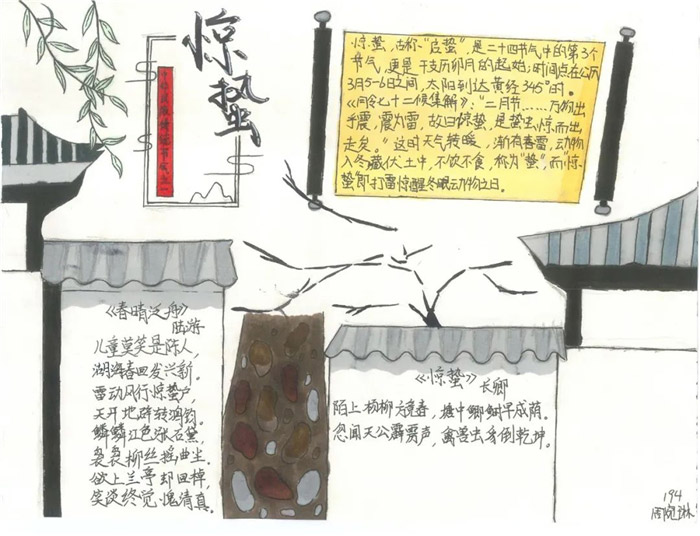 惊蛰
惊蛰,古称“启蛰”,是二十四节气中的第3个
节气,更是干支历卯月的起始;时间点在公历
3月5-6日之间,太阳到达黄经345°时。
《月令七十二候集解》:“二月节……万物出
乎震,震为雷,故曰惊蛰,是蛰虫惊而出
走矣。”这时天气转暖,渐有春雷,动物
入冬藏伏土中,不饮不食,称为“蛰”,而“惊
蛰”即打雷惊醒冬眠动物之日。
《春晴泛舟》
陆游
儿童莫笑是陈人,
湖海春回发兴新。
雷动风行惊蛰户,
天开地辟转鸿钧。
鳞鳞江色涨石黛,
袅袅柳丝摇曲尘。
欲上兰亭却回棹,
笑谈终觉愧清真。
《惊蛰》
长卿
陌上杨柳方竞春,塘中鲫鲥早成荫。
忽闻天公霹雳声,禽兽虫豸倒乾坤。
194